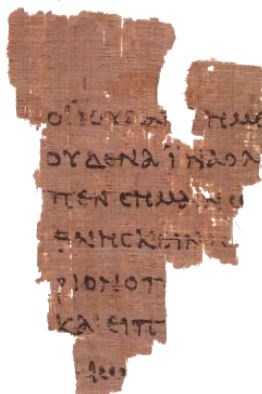 ΟΙΙΟΥΔΑΙ ΗΜΕ
ΟΥΔΕΝΑΪΝΑΟΛ
ΠΕΝϹΗΜΑΙΝω
ΘΝΗϹΚΕΙΝΙ
ΡΙΟΝΟΠ
ΚΑΙΕΙΠ